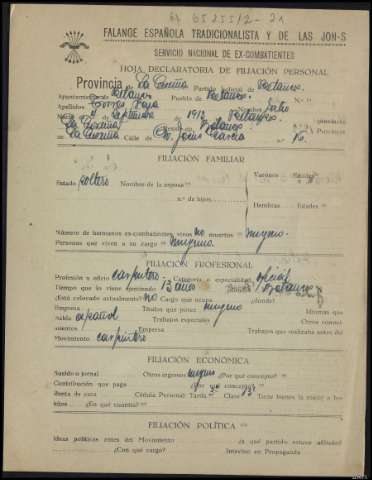 65255/2-21
FALANGE ESPAÑOLA TRADICIONALISTA Y DE LAS JON-S
SERVICIO NACIONAL DE EX-COMBATIENTES
HOJA DECLARATORIA DE FILIACIÓN PERSONAL
Provincia de La Coruña Partido Judicial de Betanzos
Ayuntamiento Betanzos Pueblo de Betanzos N.º
Apellidos Torres Nombre Julio
de 1912 Betanzos Provincia
La Coruña Betanzos Provincia
La Coruña Calle de Dr. Jesús García N.º
FILIACIÓN FAMILIAR
Varones Edades
Estado soltero Nombre de la esposa
n.º de hijos
Hembras Edades
Número de hermanos ex-combatientes vivos no muertos ninguno.
Personas que viven a su cargo ninguno.
FILIACIÓN PROFESIONAL
Profesión u oficio carpintero Categoría o especialidad oficial
Tiempo que la viene ejerciendo 13 años ¿Dónde? Betanzos
¿Está colocado actualmente? no Cargo que ocupa ¿dónde?
Títulos que posee ninguno Idiomas que
habla español Trabajos especiales Otros conoci-
mientos Empresa Trabajos que realizaba antes del
Movimiento carpintero
FILIACIÓN ECONÓMICA
Sueldo o jornal Otros ingresos ninguno ¿Por qué concepto?
Contribución que paga ¿Por qué concepto?
Renta de casa Cédula Personal Tarifa 3ª Clase 13 Tiene bienes la mujer o los
hijos ¿En qué cuantía?
FILIACIÓN POLÍTICA
Ideas políticas antes del Movimiento ¿a qué partido estuvo afiliado?
¿Con qué cargo? Intervino en Propaganda